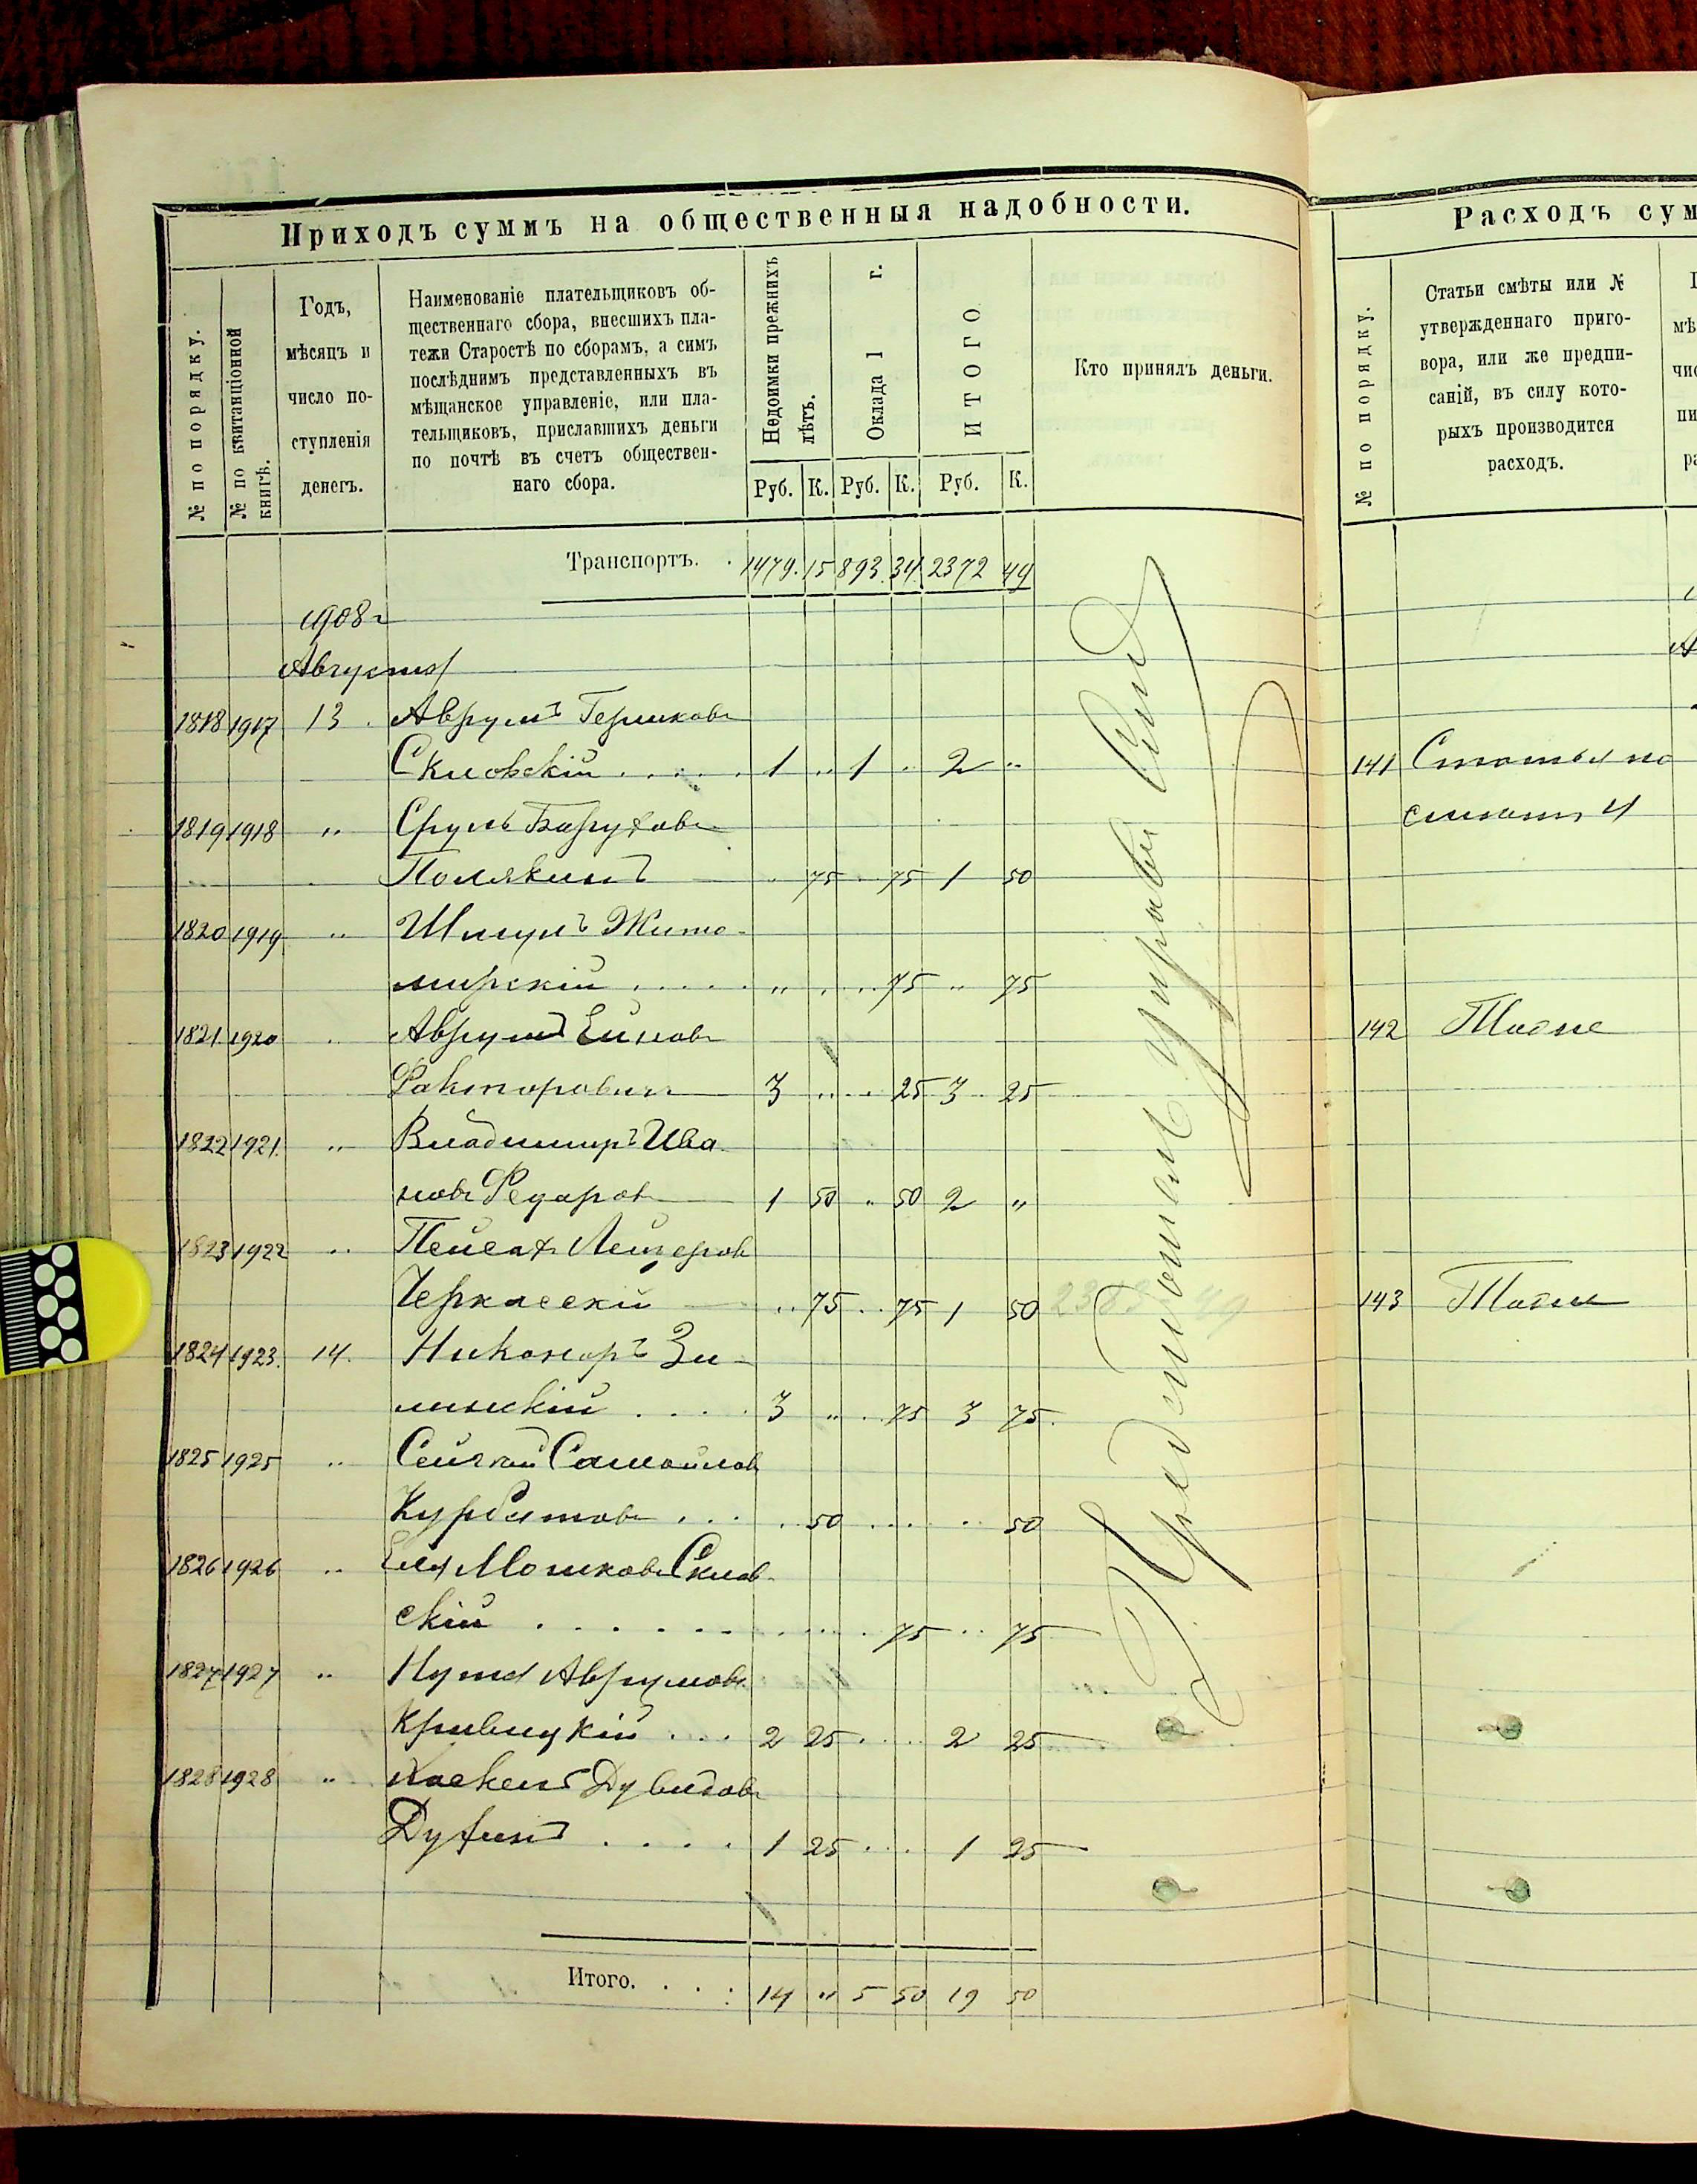 Приходъ суммъ на общественныя надобности.
№ по порядку.
№ по квитанціонной книгѣ.
Годъ, мѣсяцъ и число поступленія денегъ.
Наименованіе плательщиковъ об-
щественнаго сбора, внесшихъ пла-
тежи Старостѣ по сборамъ, а симъ
послѣднимъ представленныхъ въ
мѣщанское управленіе, или пла-
тельщиковъ, приславшихъ деньги
по почтѣ въ счетъ обществен-
наго сбора.
Недоимки прежнихъ лѣтъ.
Оклада 1 г.
ИТОГО
Кто принялъ деньги.
Руб. К. Руб. К. Руб. К.
Транспортъ. . 1479. 15 893. 34. 2372 49
1908 г
Августа
1818 1917 13. Аврумъ Гершковъ
Скловскій . . . . . 1 „ 1 „ 2 „
1819 1918 „ Сруль Баруховъ
Полякинъ „ 75 „ 75 1 50
1820 1919 „ Шмулъ Жито-
мирскій . . . . . „ „ „ 75 „ 75
1821 1920 „ Аврумъ
Факторовичъ 3 „ „ 25 3 25
1822 1921. „ Владимиръ Ива-
новъ 1 50 „ 50 2 „
1823 1922 „ Пейсахъ Лейзеровъ
Черкасскій „ 75 „ 75 1 50
1824 1923. 14. Никаноръ Зи-
минскій . . . . 3 „ „ 75 3 75.
1825 1925 „ Самойловъ
Курбатовъ . . . . 50 . . . . 50
1826 1926 „ Еля Мошковъ Склов-
скій . . . . . . . . . 75 „ 75
1827 1927 „ Нута Аврумовъ
Кривицкій . . . 2 25 . . . 2 25
1828 1928 „ Дувидовъ
Духинъ . . . . 1 25 . . . 1 25
Итого. . . : 14 „ 5 50 19 50
Расходъ сум
№ по порядку.
Статьи смѣты или №
утвержденнаго приго-
вора, или же предпи-
саній, въ силу кото-
рыхъ производится
расходъ.
141 Статья по
смѣты 4
142 Тоже
143 Тоже